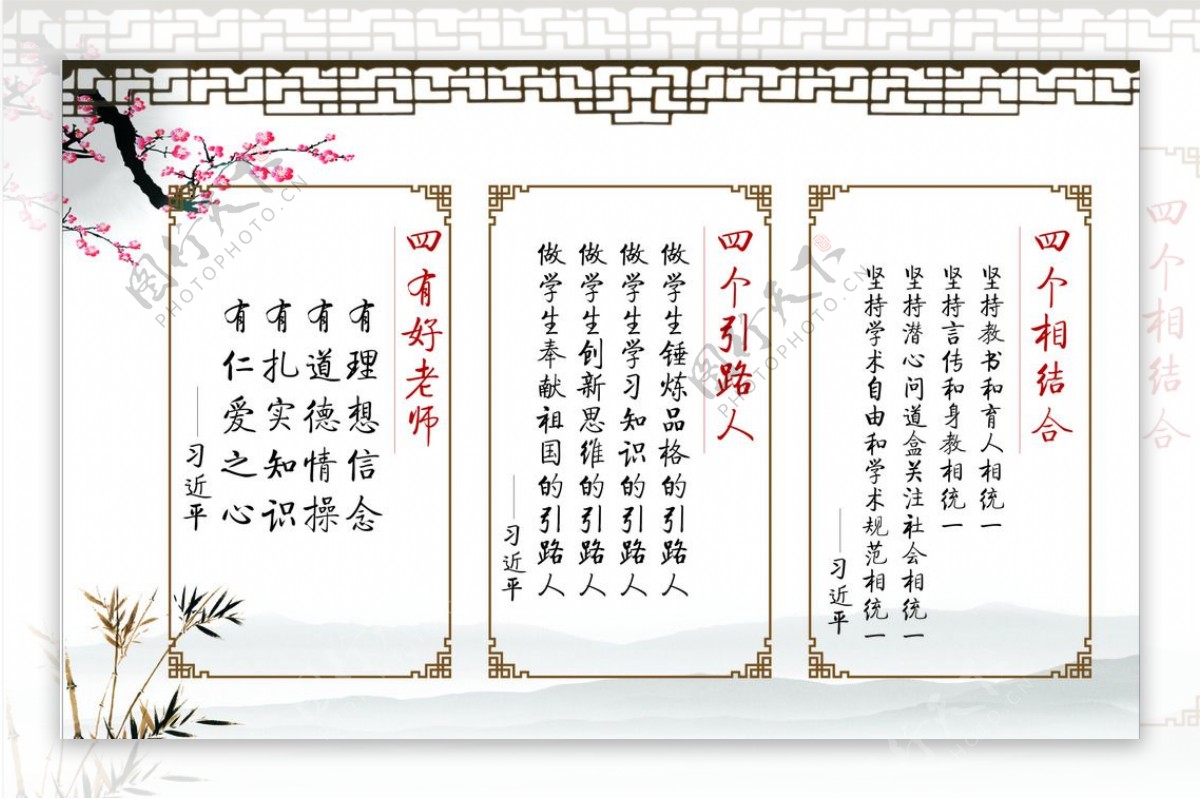 四有好老师
有理想信念
有道德情操
有扎实知识
有仁爱之心
——习近平
四个引路人
做学生锤炼品格的引路人
做学生学习知识的引路人
做学生创新思维的引路人
做学生奉献祖国的引路人
——习近平
四个相结合
坚持教书和育人相统一
坚持言传和身教相统一
坚持潜心问道盒关注社会相统一
坚持学术自由和学术规范相统一
——习近平
四个相结合
图行天下
PHOTOPHOTO.CN
图行天下
PHOTOPHOTO.CN